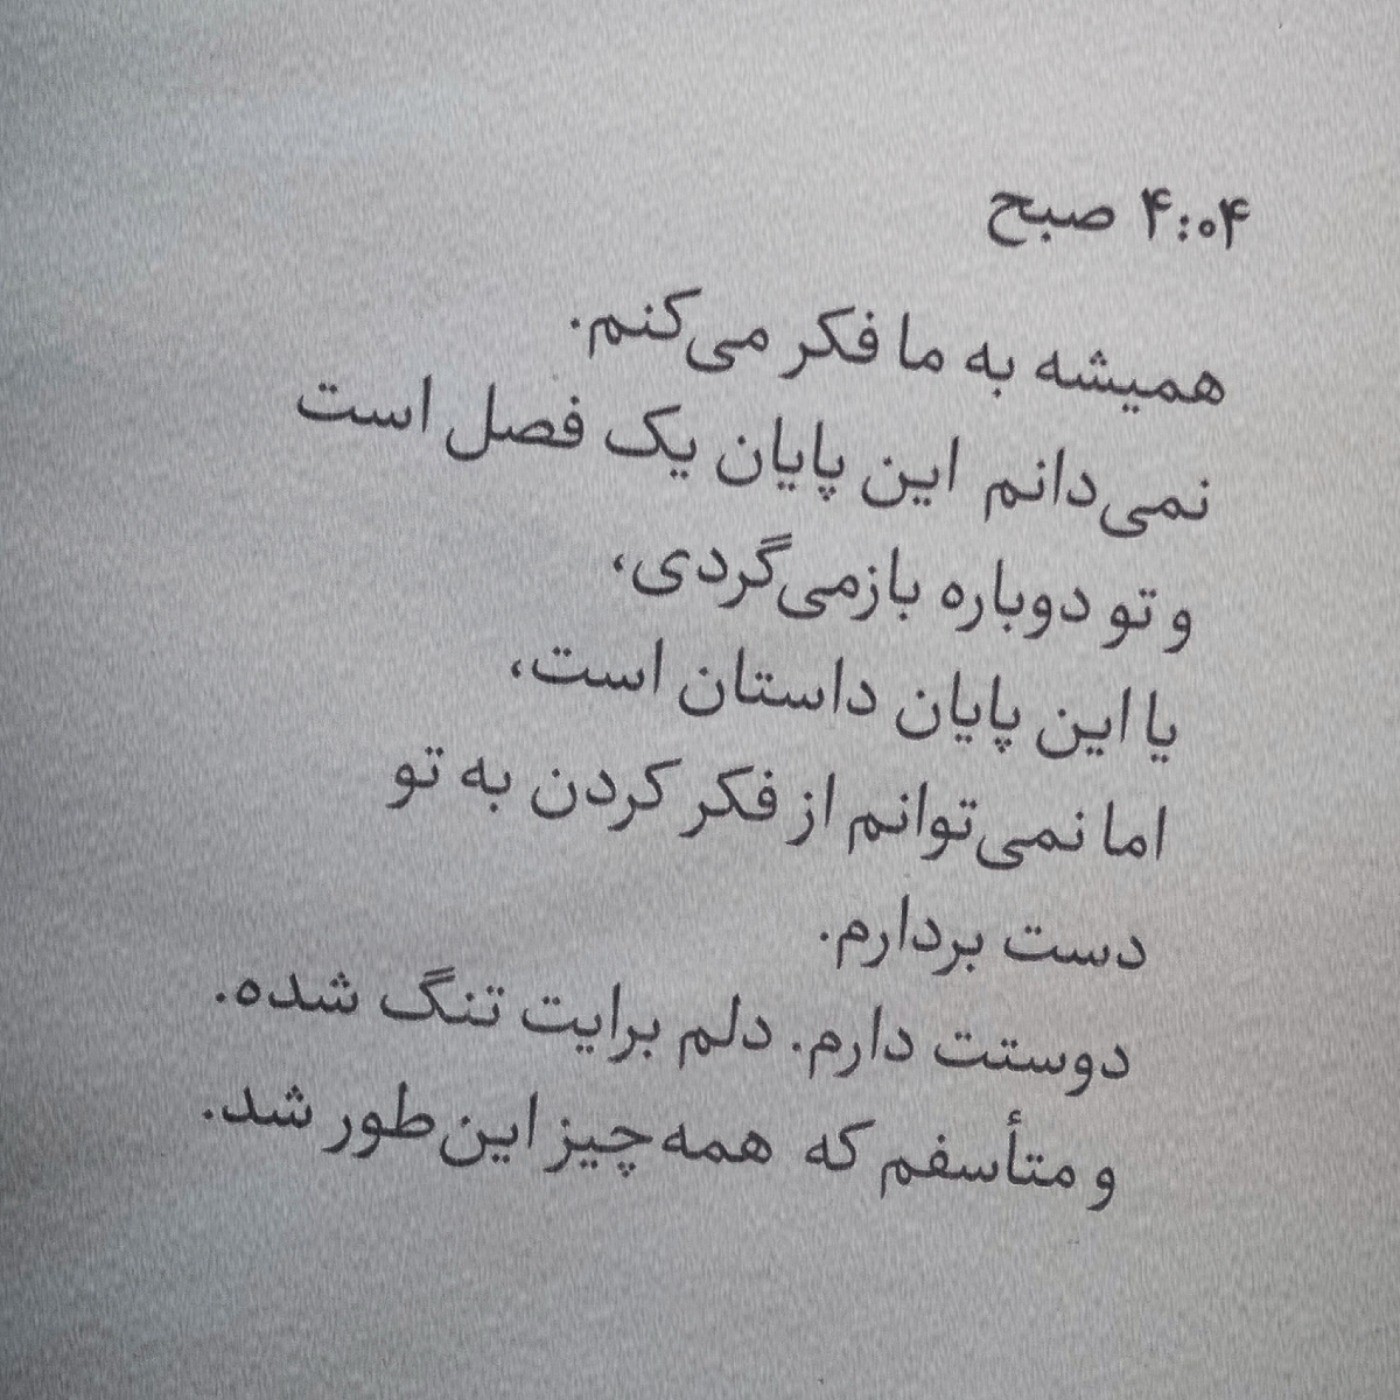 ۴:۰۴ صبح
همیشه به ما فکر می‌کنم.
نمی‌دانم این پایان یک فصل است
و تو دوباره بازمی‌گردی،
یا این پایان داستان است،
اما نمی‌توانم از فکر کردن به تو
دست بردارم.
دوستت دارم. دلم برایت تنگ شده.
و متأسفم که همه‌چیز این‌طور شد.